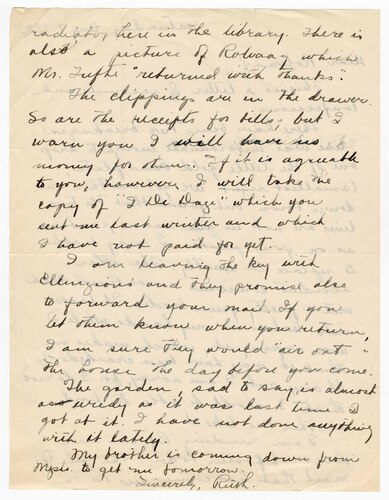 radiator here in the library. There is
also a picture of Rolvaag which
Mr. Tufte "returned with thanks".
The clippings are in the drawer
So are the receipts for bills; but I
warn you I will have no
money for them. If it is agreeable
to you, however, I will take the
copy of "I De Dage" which you
sent me last winter and which
I have not paid for yet.
I am leaving the key with
Ellingsons and they promise also
to forward your mail. If you
let them know when you return,
I am sure they would "air out"
the house the day before you come.
The garden, sad to say, is almost
as weedy as it was last time I
got at it. I have not done anything
with it lately.
My brother is coming down from
to get me tomorrow.
Sincerely, Ruth.